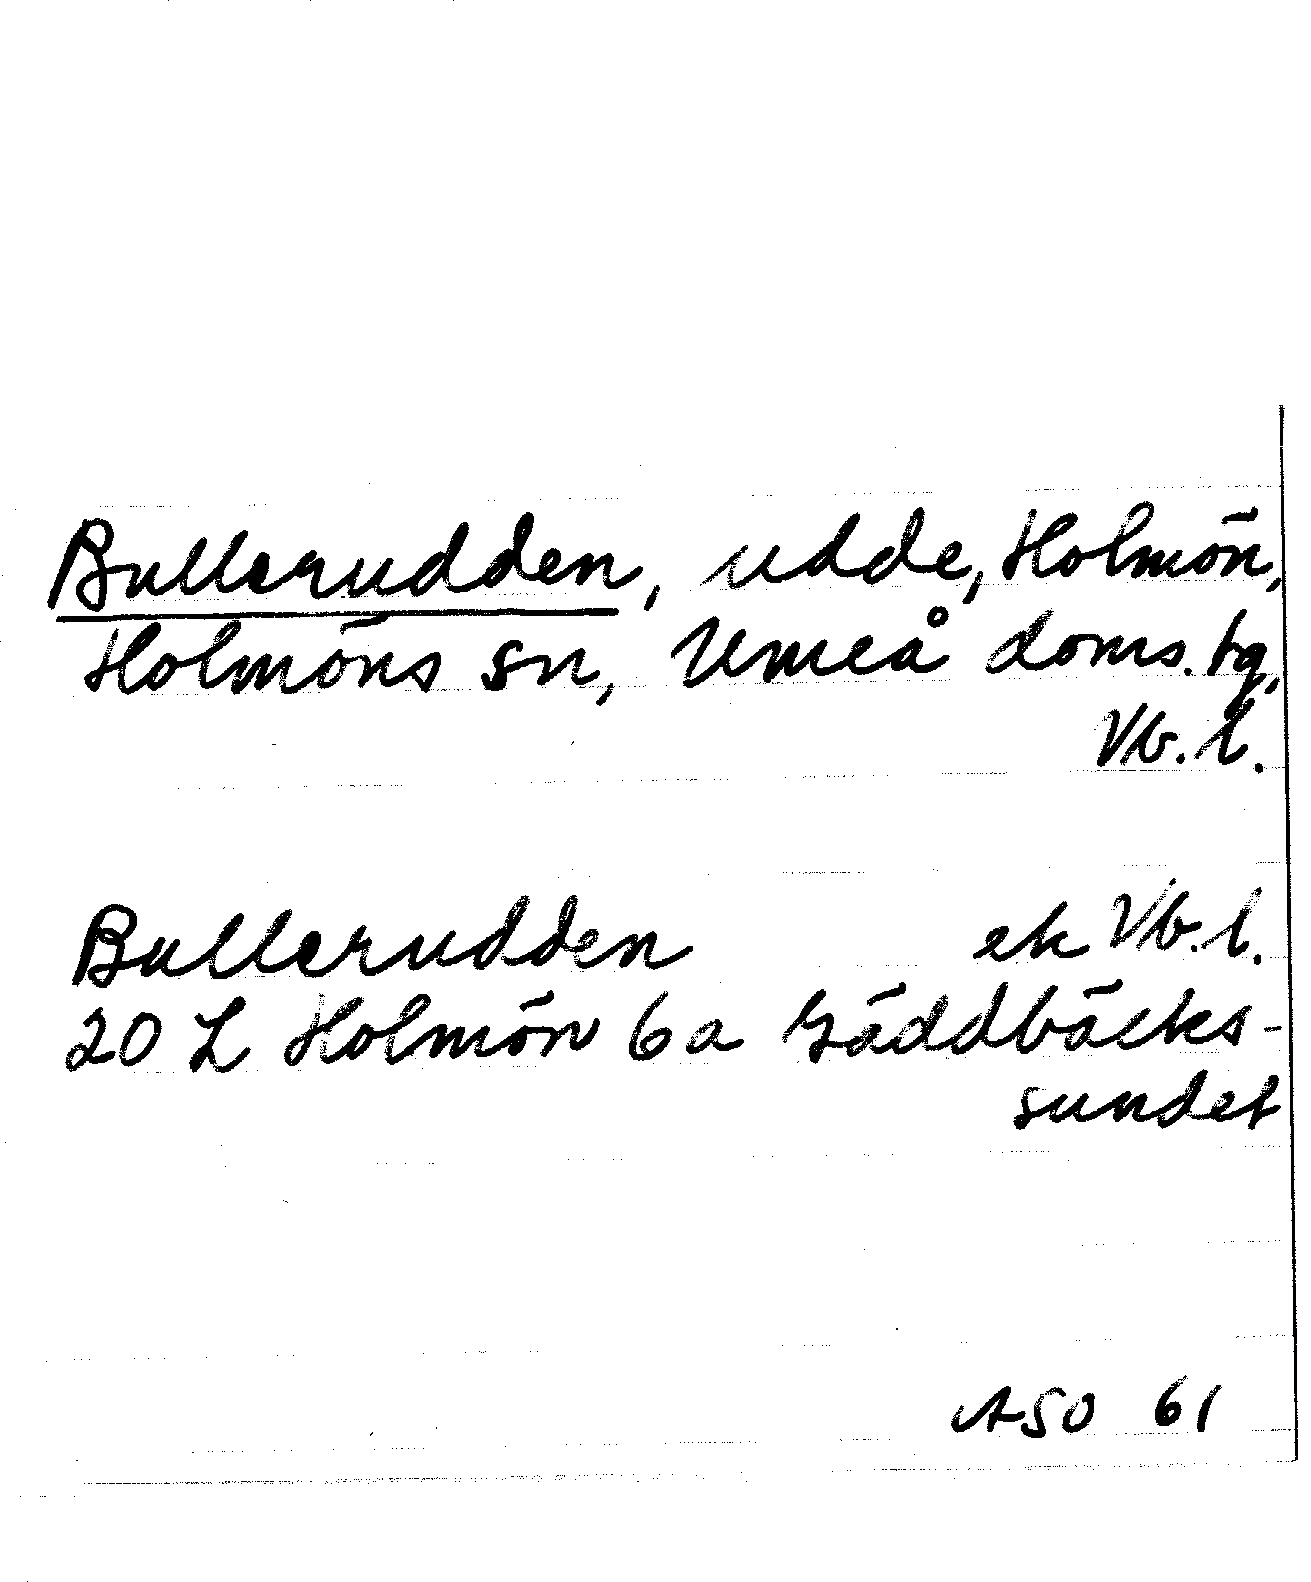 Bullerudden, udde, Holmön,
Holmöns sn, Umeå doms.tg,
Vb.l.
Bullerudden ek Vb.l.
20 L Holmön 6a Gäddbäcks-
sundet
ASO 61